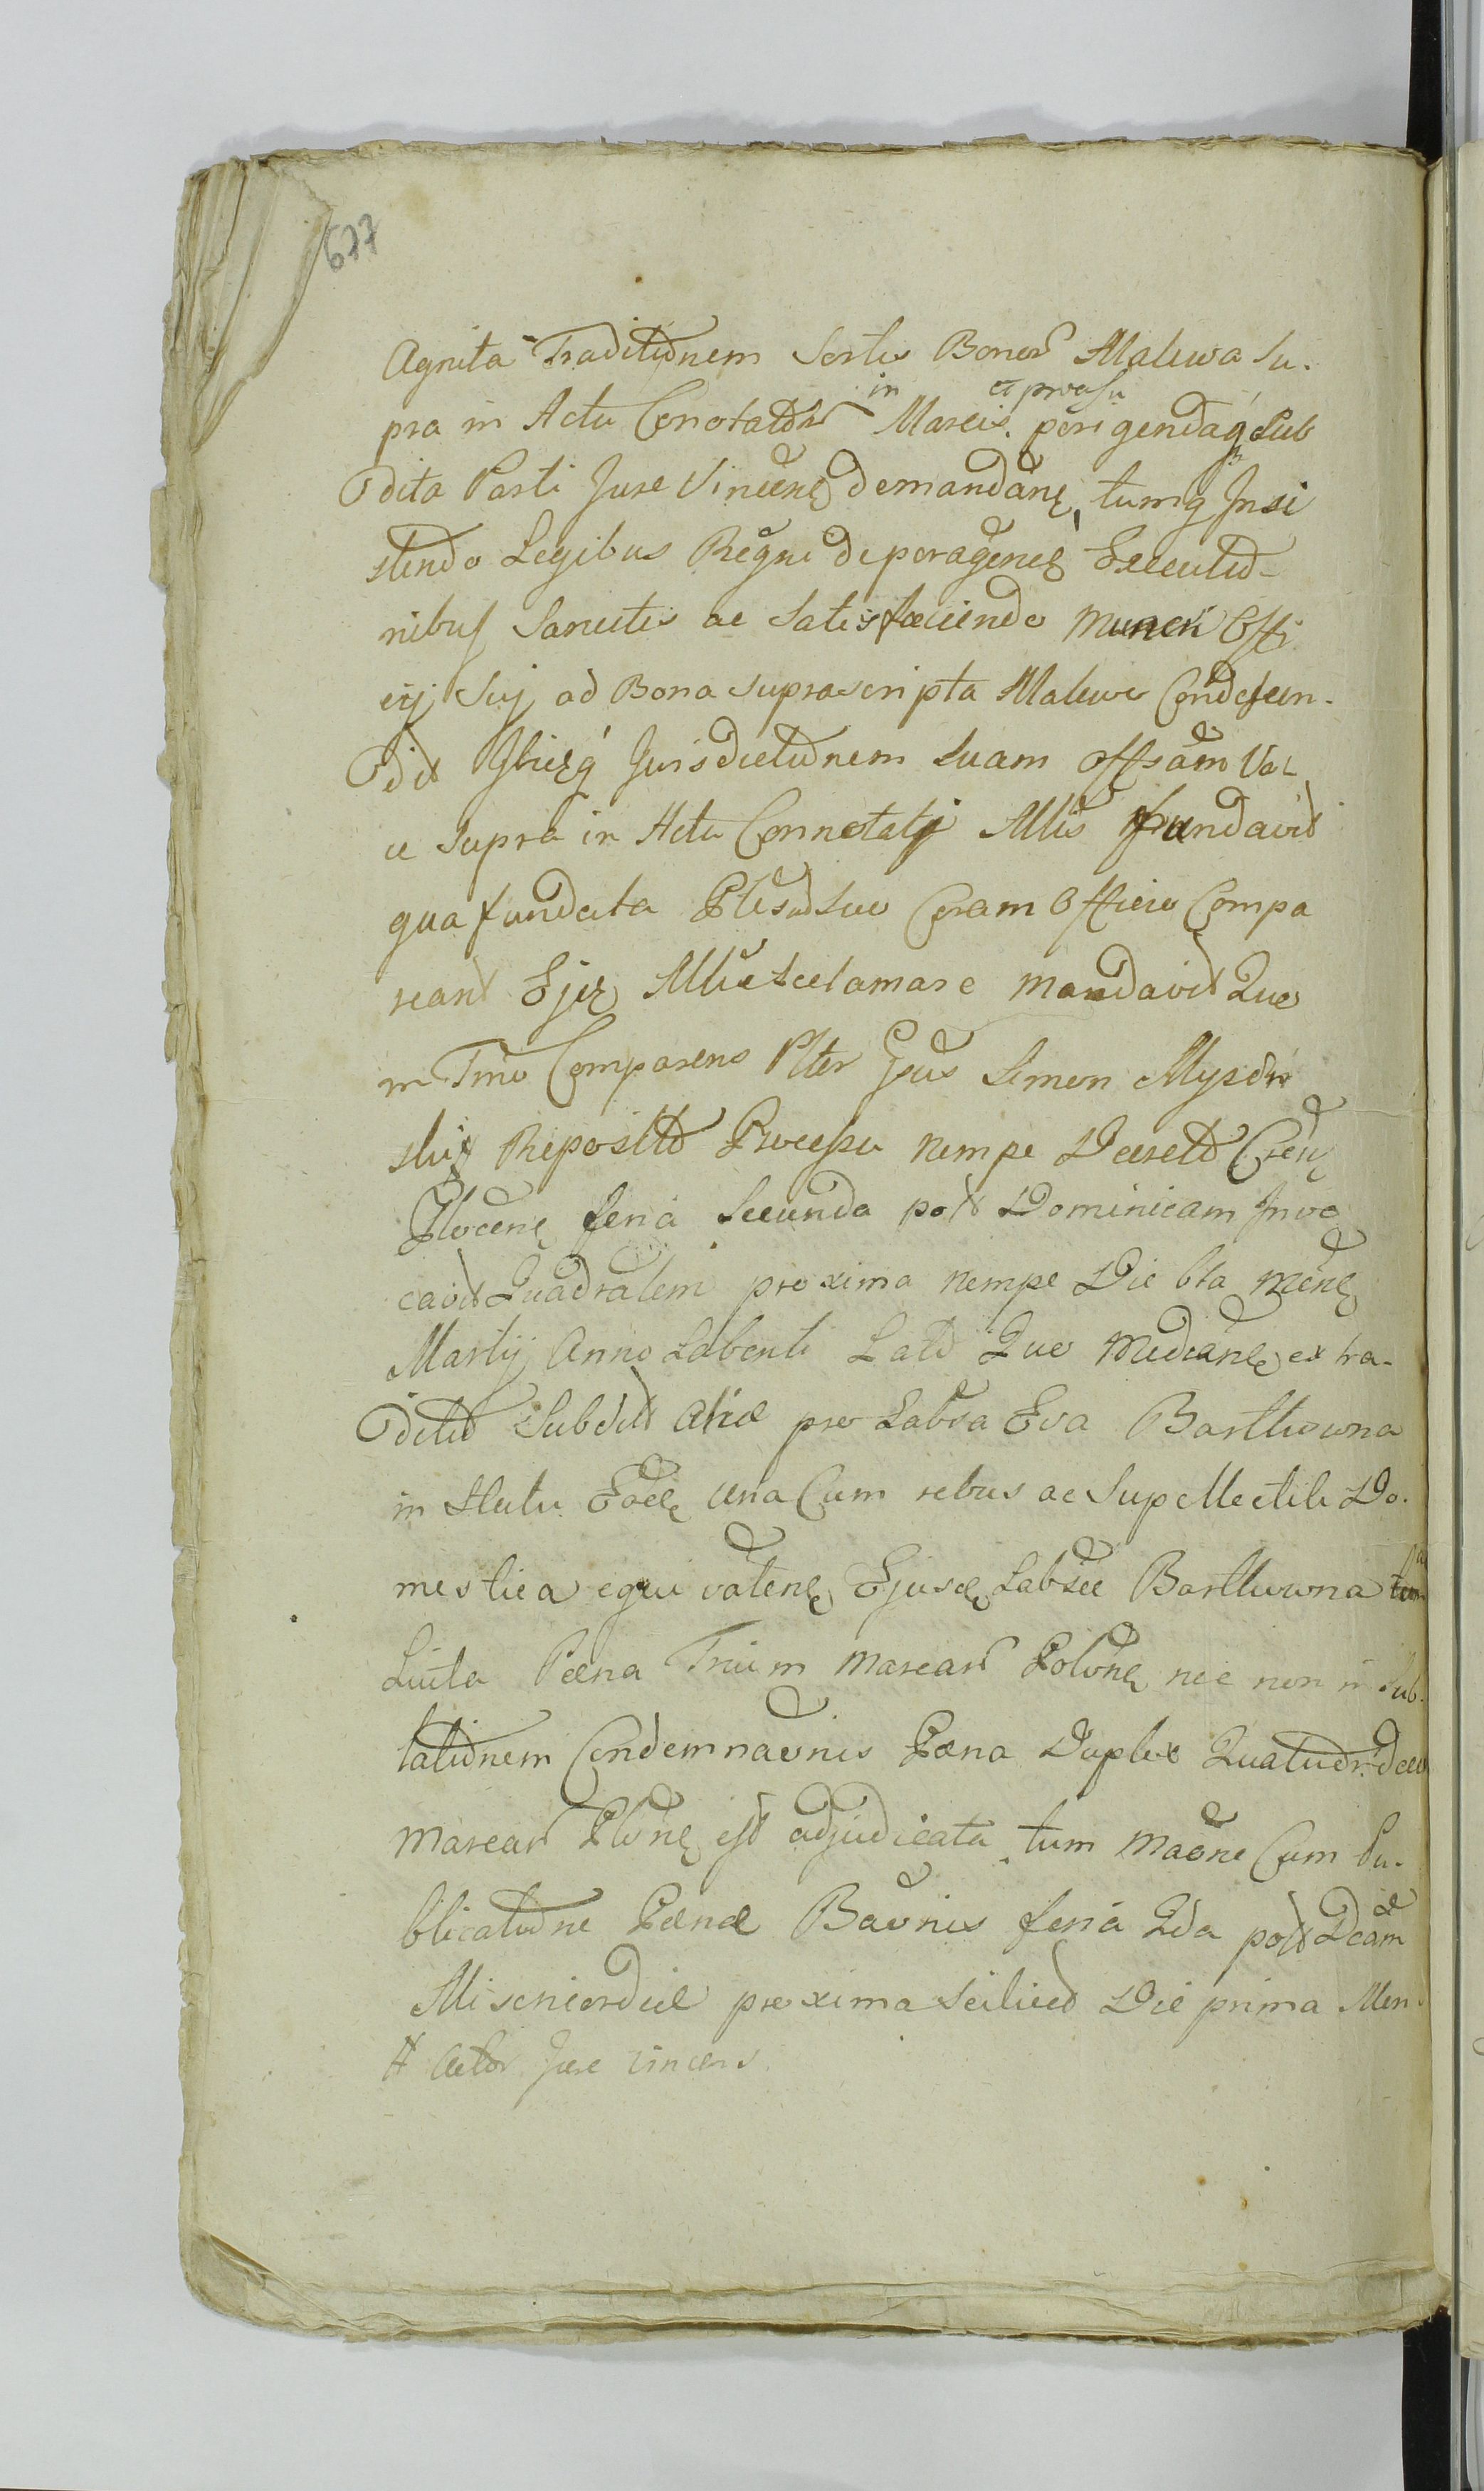 677
Agnita Traditionem Sortis Bonor Malewo Su-
pra in Actu Conotator in Marcis et processu porigendaq Sub
dita Parti Jure Vincene demandane, tumq Insi
stendo Legibus Regni de peragene Executio-
nibus Sancitis ac Satisfaciendo muneri Offi
cij Suj ad Bona suprascripta Malewo Condescen-
dit Ibieq Jurisdictionem suam offsam Vat
ie Supra in Actu Connotatj Mlis fundavit
qua fundata Coram Officio Compa
reant Ejcz Mlie acclamare mandavit Quo
in Tno Comparens Plter Gsus Simon
Reposito Processu nempe Decreto
Plocene feria Secunda post Dominicam Invo
cavit Quadralem proxima nempe Die 6ta mene
Martij Anno Labenti Lato Quo mediane extra-
ditio Subdit alie pro Labsa Eva Bartlwowna
in Statu una Cum rebus ac Supellectili Do-
mestica equi valene Ejusde Labsee Bartlwowna
Luita Paena Trium marcar Polone nec non in Sub-
lationem Condemnaonis Paena Duplex Quatuordeci
marcar Plone est adjudicata tum maone Cum Pu-
blicatione Paenae Baonis feria 2da post Dcam
Misericordiae proxima scilicet Die prima Men-
# Actor Jure vincens